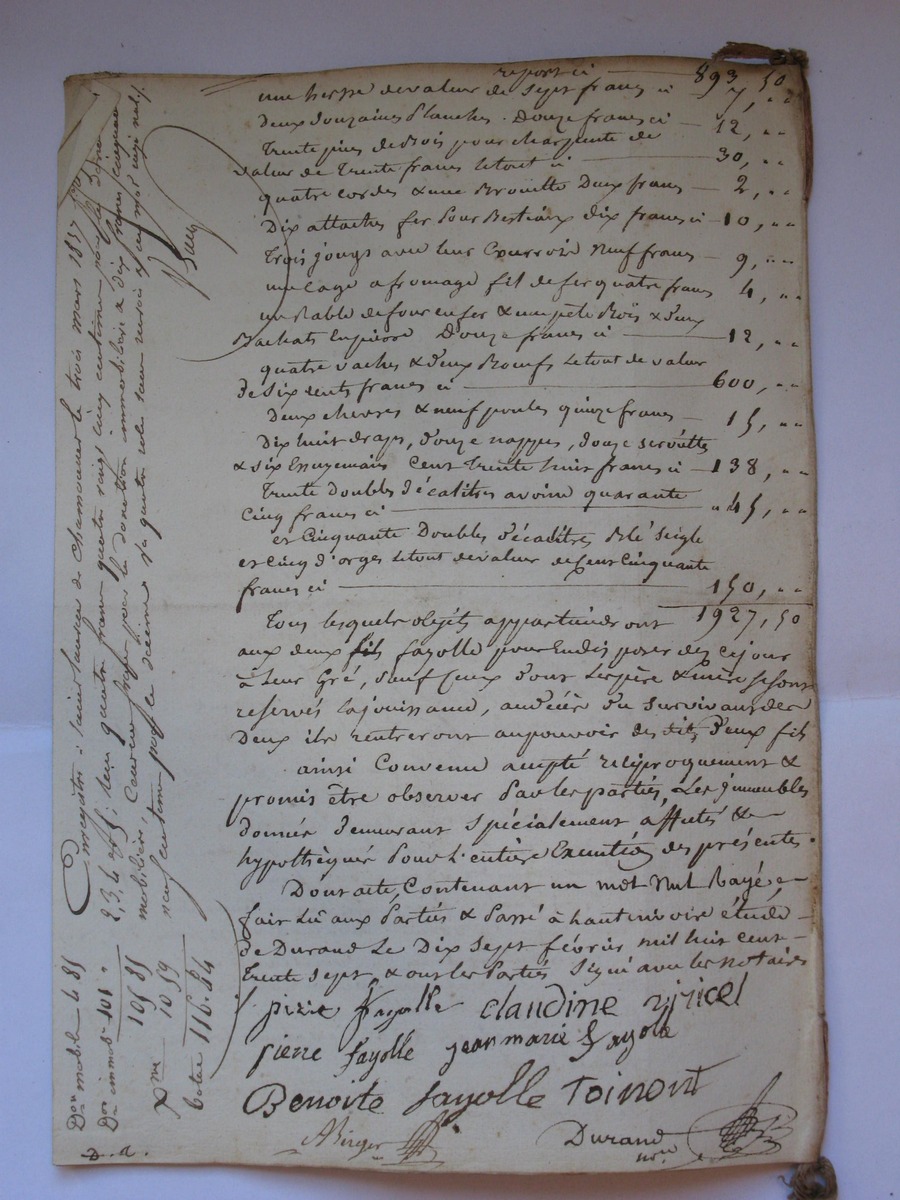 report ci — 893, 50
une herse de valeur de sept francs ci 7, ""
deux douzaines Planches. Douze francs ci — 12, ""
trente pieces de Bois pour charpente de
valeur de trente francs le tout ci — 30, ""
quatre cordes & une Brouette Deux francs — 2, ""
Dix attaches fer pour Bestiaux dix francs ci — 10, ""
trois jougs avec leur Courroie neuf francs — 9, ""
une cage a fromage fil de fer quatre francs 4, ""
un Rable de four en fer & une pele Bois & deux
Bachats en pierre Douze francs ci — 12, ""
quatre vaches & deux Boeufs le tout de valeur
de Six cents francs ci — 600, ""
Deux chevres & neuf poules quinze francs — 15, ""
Dix huit draps, douze nappes, douze serviettes
& six Essuyemains Cent trente huit francs ci — 138, ""
trente doubles décalitres avoine quarante
Cinq francs ci — " 45, ""
et Cinquante Doubles décalitres Blé seigle
et Cinq d'orges le tout de valeur de Cent Cinquante
francs ci — 150, ""
1927, 50
Tous lesquels objets appartiendront
aux deux fils fayolle pour en disposer dez ce jour
à leur Gré, sauf Ceux dont les père & mère se sont
reservés la jouissance, au décée du survivant des
Deux ils rentreront au pouvoir des dits deux fils
ainsi Convenu accepté reciproquement &
promis être observer Par les parties, Les immeubles
donnés demeurant spécialement affectés &
hypothéqués Pour l'entière Execution des présentes.
Dont acte, Contenant un mot Nul Rayé —
fait Lu aux Parties & Passé à hauterivoire étude
de Durand Le Dix Sept février mil huit cent
trente sept, & ont les Parties Signé avec les notaires
pierre fayolle claudine viricel
pierre fayolle jean marie fayole
Benoite fayolle Toinont
Durand
nre
Enregistré à Saint Laurent de Chamousset le trois mars 1837
mobiliere,
Don mobile 4 85
Dn immob 101 "
105 85
Xme 10 59
total 116. 44
D. a.